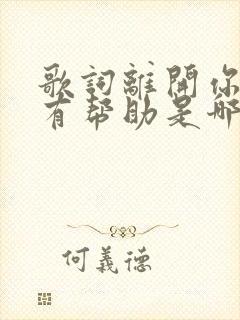 歌詞離開你
有帮助是哪
何義德